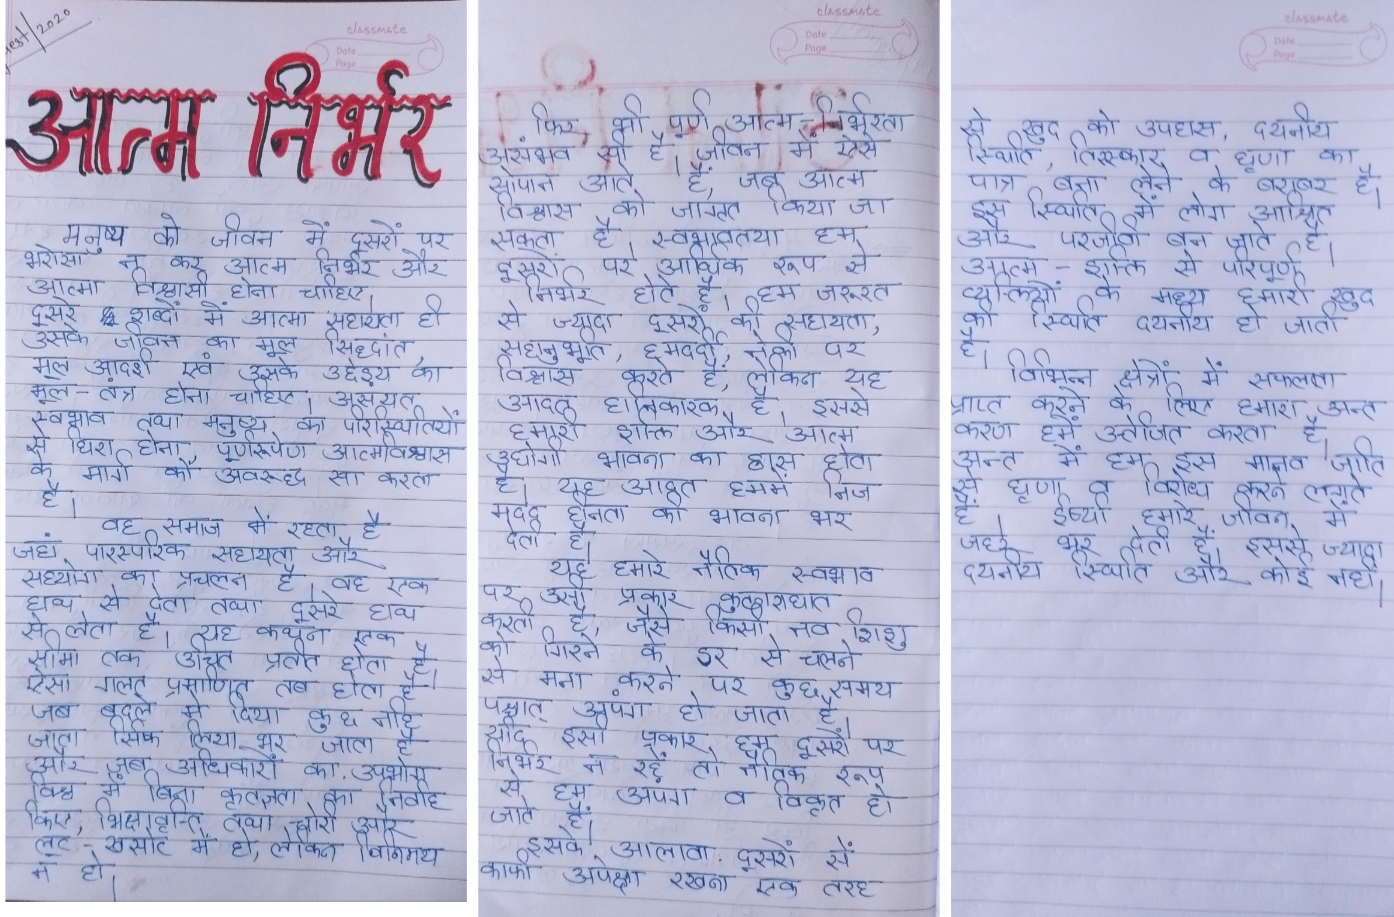 /2020
classmate
Date
Page
आत्म निर्भर
मनुष्य को जीवन में दूसरों पर
भरोसा न कर आत्म निर्भर और
आत्मा विश्वासी होना चाहिए।
दूसरे शब्दों में आत्मा सहायता ही
उसके जीवन का मूल सिद्धांत,
मूल आदर्श एवं उसके उद्देश्य का
मूल-तंत्र होना चाहिए। असंयत
स्वभाव तथा मनुष्य का परिस्थितियों
से घिरा होना, पूर्णरूपेण आत्मविश्वास
के मार्ग को अवरूद्ध सा करता
है।
वह समाज में रहता है
जहां पारस्परिक सहायता और
सहयोग का प्रचलन है। वह एक
हाथ से देता तथा दूसरे हाथ
से लेता है। यह कथन एक
सीमा तक उचित प्रतीत होता है।
ऐसा गलत प्रमाणित तब होता है
जब बदले में दिया कुछ नहि
जाता सिर्फ लिया भर जाता है
और जब अधिकारों का उपभोग
विश्व में बिना कृतज्ञता का निर्वाह
किए, भिक्षावृत्ति तथा चोरी और
लूट-खसोट में हो, लेकिन विनिमय
में हो।
classmate
Date
Page
फिर भी पूर्ण आत्म-निर्भरता
असंभव सी है। जीवन में ऐसे
सोपान आते हैं, जब आत्म
विश्वास को जागृत किया जा
सकता है। स्वभावतया हम
दूसरों पर आर्थिक रूप से
निर्भर होते है। हम जरूरत
से ज्यादा दूसरों की सहायता,
सहानुभूति, हमदर्दी, नेकी पर
विश्वास करते है, लेकिन यह
आदत हानिकारक है। इससे
हमारी शक्ति और आत्म
उद्योगी भावना का ह्रास होता
है। यह आदत हममें निज
मदद हीनता की भावना भर
देती है।
यह हमारे नैतिक स्वभाव
पर उसी प्रकार कुठाराघात
करती है, जैसे किसी नव शिशु
को गिरने के डर से चलने
से मना करने पर कुछ समय
पश्चात् अपंग हो जाता है,
यदि इसी प्रकार हम दूसरों पर
निर्भर न रहें तो नैतिक रूप
से हम अपंग व विकृत हो
जाते हैं।
इसके आलावा दूसरों से
काफी अपेक्षा रखना एक तरह
classmate
Date
Page
से खुद को उपहास, दयनीय
स्थिति, तिरस्कार व घृणा का
पात्र बना लेने के बराबर है।
इस स्थिति में लोग आश्रित
और परजीवी बन जाते है।
आत्म-शक्ति से परिपूर्ण
व्यक्तियों के मध्य हमारी खुद
की स्थिति दयनीय हो जाती
है।
विभिन्न क्षेत्रों में सफलता
प्राप्त करने के लिए हमारा अन्त
करण हमें उत्तेजित करता है,
अन्त में हम इस मानव जाति
से घृणा व विरोध करने लगते
है। ईर्ष्या हमारे जीवन में
जहर भर देती है। इससे ज्यादा
दयनीय स्थिति और कोई नहीं।